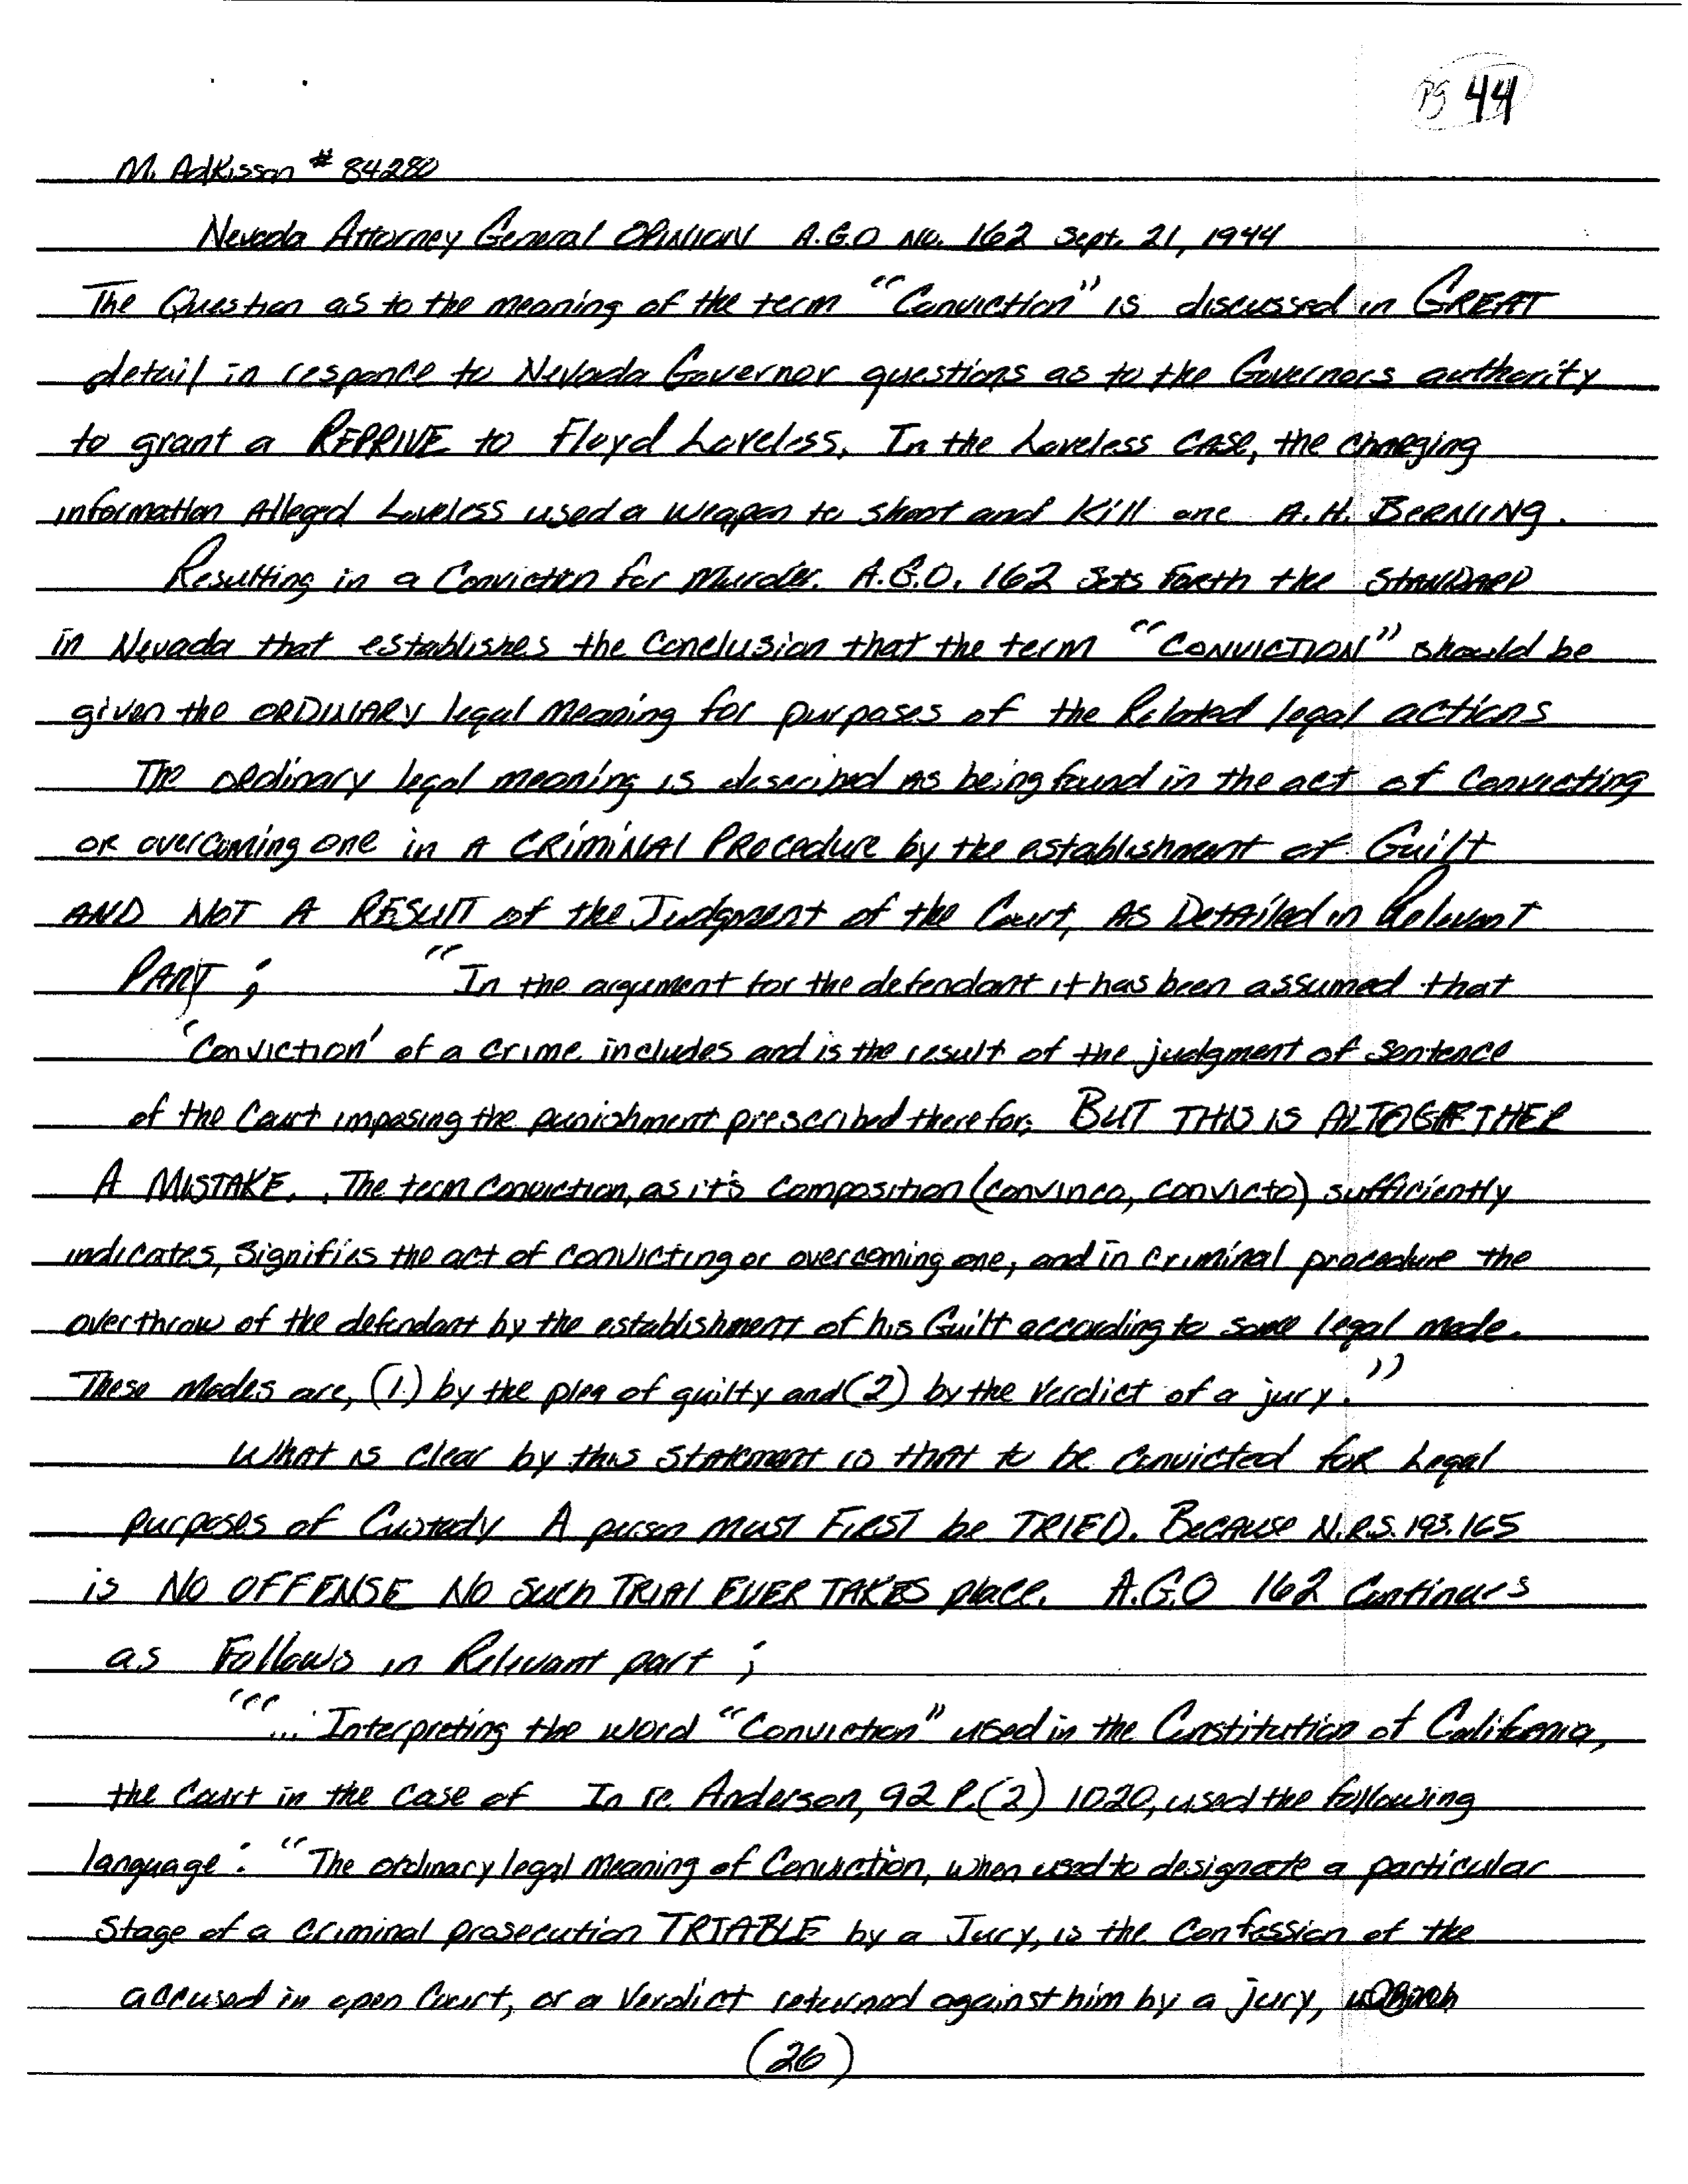 pg 44
M. Adkisson # 84280
Nevada Attorney General OPINION A.G.O NO. 162 Sept. 21, 1944
The Question as to the meaning of the term "Conviction" is discussed in GREAT
detail in responce to Nevada Governor questions as to the Governors authority
to grant a REPRIVE to Floyd Loveless. In the Loveless CASE, the charging
information Alleged Loveless used a weapon to shoot and kill one A.H. BERNING.
Resulting in a Conviction for Murder. A.G.O. 162 Sets Forth the STANDARD
in Nevada that establishes the Conclusion that the term "CONVICTION" should be
given the ORDINARY legal Meaning for purposes of the Related legal actions
The ordinary legal meaning is described AS being found in the act of Convicting
OR overcoming one in A CRIMINAL PROcedure by the establishment of Guilt
AND NOT A RESULT of the Judgment of the Court, AS DetAiled in Relevant
PART ; "In the argument for the defendant it has been assumed that
'Conviction' of a crime includes and is the result of the judgment of Sentence
of the Court imposing the punishment prescribed therefor; BUT THIS IS ALTOGETHER
A MISTAKE. The term conviction, as it's Composition (convinco, convicto) sufficiently
indicates, signifies the act of convicting or overcoming one, and in criminal procedure the
overthrow of the defendant by the establishment of his Guilt according to some legal mode.
These Modes are, (1.) by the plea of guilty and (2) by the Verdict of a jury."
What is Clear by this Statement is that to be Convicted for Legal
purposes of Custody A person MUST FIRST be TRIED. BECAUSE N.R.S. 193.165
is NO OFFENSE NO Such TRIAl EVER TAKES place. A.G.O 162 Continues
as Follows in Relevant part ;
"'... Interpreting the word "Conviction" used in the Constitution of California,
the Court in the case of In re. Anderson, 92 P.(2) 1020, used the following
language: "The ordinary legal Meaning of Conviction, when used to designate a particular
Stage of a criminal prosecution TRIABLE by a Jury, is the Confession of the
accused in open Court, or a Verdict returned against him by a jury, which
(26)